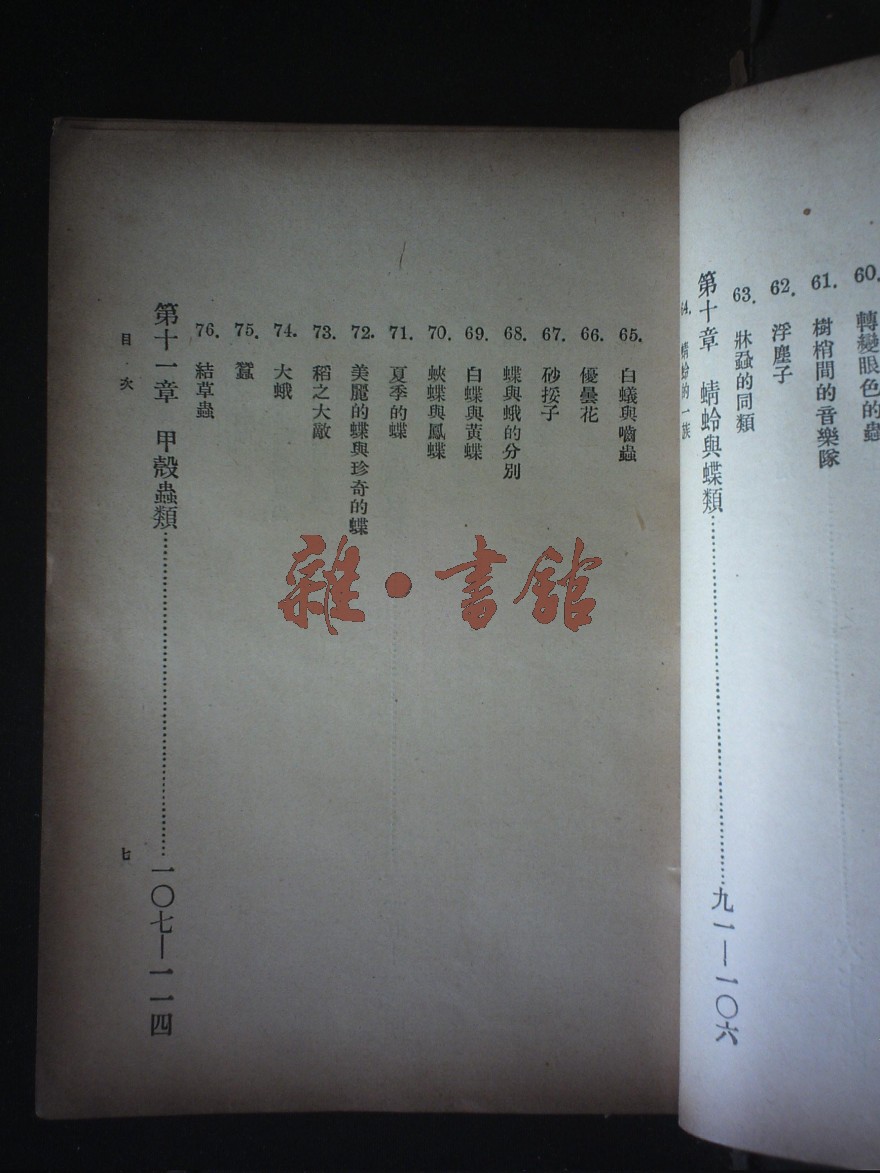 60. 轉變眼色的蟲
61. 樹梢間的音樂隊
62. 浮塵子
63. 牀蝨的同類
第十章 蜻蛉與蝶類……九一—一〇六
64. 蜻蛉的一族
65. 白蟻與嚙蟲
66. 優曇花
67. 砂挼子
68. 蝶與蛾的分別
69. 白蝶與黃蝶
70. 蛺蝶與鳳蝶
71. 夏季的蝶
72. 美麗的蝶與珍奇的蝶
73. 稻之大敵
74. 大蛾
75. 蠶
76. 結草蟲
第十一章 甲殼蟲類……一〇七—一一四
目次
七
雜·書館